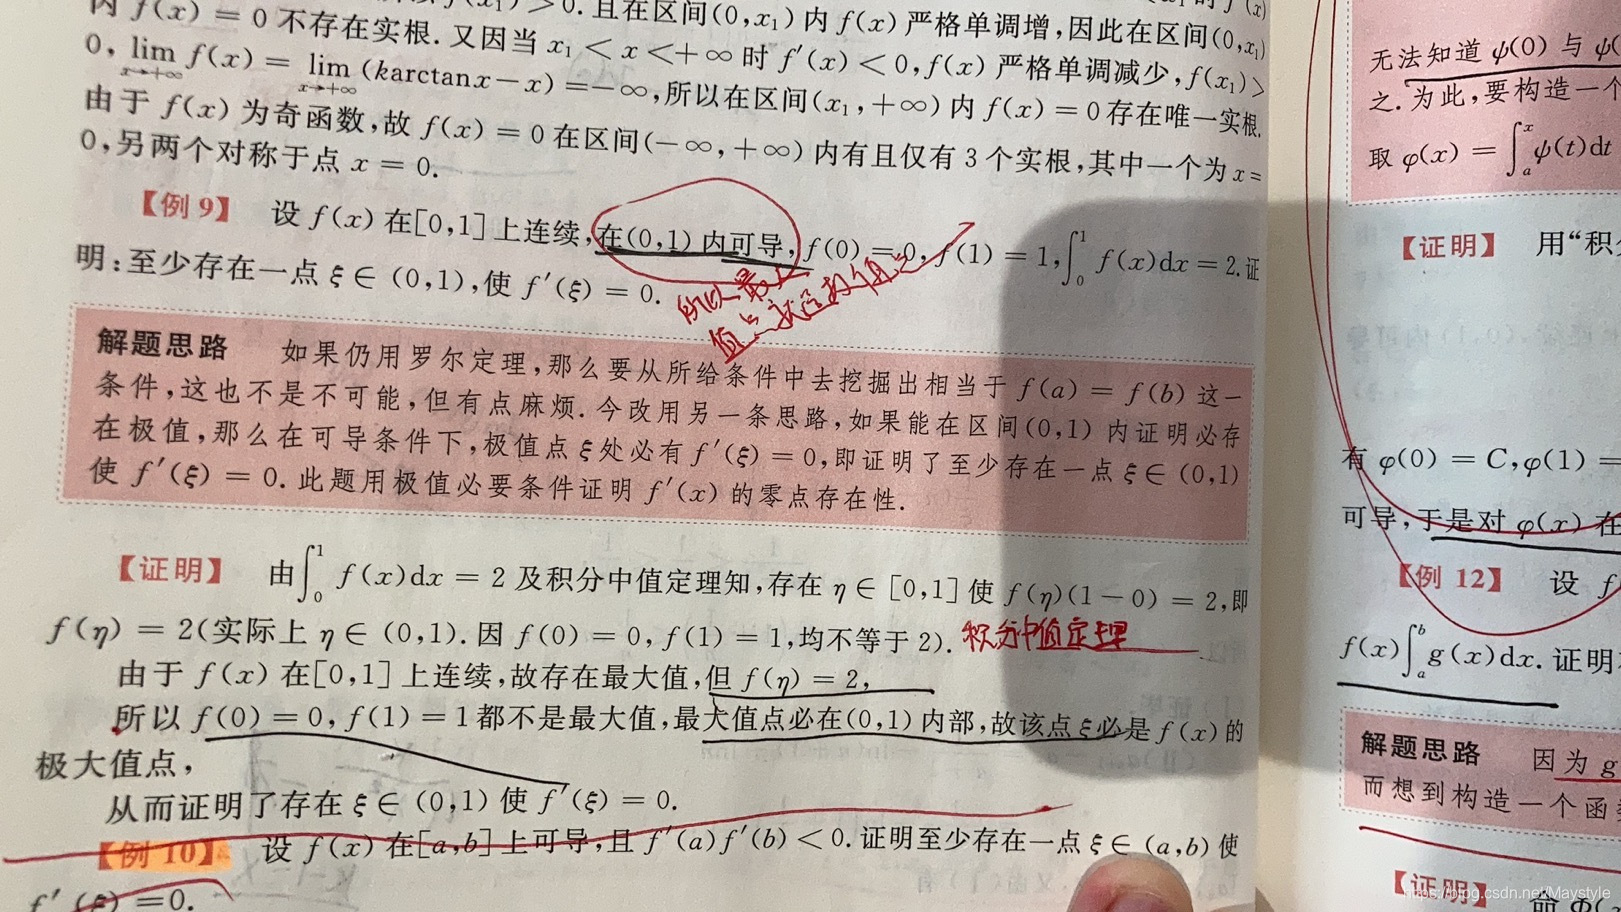 内 f(x) = 0 不存在实根. 又因当 x₁ < x < +∞ 时 f′(x) < 0, f(x) 严格单调减少, f(x₁) >
0, lim_{x→+∞} f(x) = lim_{x→+∞} (karctanx − x) = −∞, 所以在区间(x₁, +∞) 内 f(x) = 0 存在唯一实根.
由于 f(x) 为奇函数, 故 f(x) = 0 在区间(−∞, +∞) 内有且仅有 3 个实根, 其中一个为 x =
0, 另两个对称于点 x = 0.
【例 9】 设 f(x) 在[0,1] 上连续, 在(0,1) 内可导, f(0) = 0, f(1) = 1, ∫₀¹ f(x)dx = 2. 证
明: 至少存在一点 ξ ∈ (0,1), 使 f′(ξ) = 0.
所以最大
值点就是极值点
解题思路 如果仍用罗尔定理, 那么要从所给条件中去挖掘出相当于 f(a) = f(b) 这一
条件, 这也不是不可能, 但有点麻烦. 今改用另一条思路, 如果能在区间(0,1) 内证明必存
在极值, 那么在可导条件下, 极值点 ξ 处必有 f′(ξ) = 0, 即证明了至少存在一点 ξ ∈ (0,1)
使 f′(ξ) = 0. 此题用极值必要条件证明 f′(x) 的零点存在性.
【证明】 由∫₀¹ f(x)dx = 2 及积分中值定理知, 存在 η ∈ [0,1] 使 f(η)(1−0) = 2, 即
f(η) = 2(实际上 η ∈ (0,1). 因 f(0) = 0, f(1) = 1, 均不等于 2). 积分中值定理
由于 f(x) 在[0,1] 上连续, 故存在最大值, 但 f(η) = 2,
所以 f(0) = 0, f(1) = 1 都不是最大值, 最大值点必在(0,1) 内部, 故该点 ξ 必是 f(x) 的
极大值点,
从而证明了存在 ξ ∈ (0,1) 使 f′(ξ) = 0.
【例 10】 设 f(x) 在[a,b] 上可导, 且 f′(a)f′(b) < 0. 证明至少存在一点 ξ ∈ (a,b) 使
f′(ξ) = 0.
无法知道 ψ(0) 与 ψ(
之. 为此, 要构造一个
取 φ(x) = ∫ₐˣ ψ(t)dt
【证明】 用“积分
有 φ(0) = C, φ(1) =
可导, 于是对 φ(x) 在
【例 12】 设 f
f(x)∫ₐᵇ g(x)dx. 证明
解题思路 因为 g
而想到构造一个函
【证明】 命 Φ(
https://blog.csdn.net/Maystyle